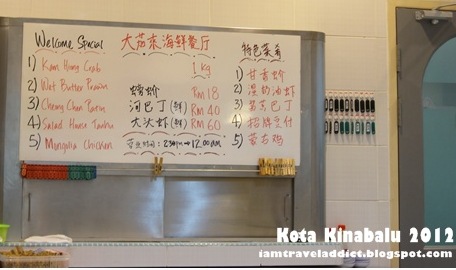 Welcome Special
1) Kam Hong Crab
2) Wet Butter Prawn
3) Cheong Chan Patin
4) Salad House Tauhu
5) Mongolia Chicken
大茄來海鲜餐厅
1 kg
螃蟹 RM 18
河巴丁 RM 40
大头虾 RM 60
营业时间: 230pm → 12.00am
特色菜肴
1) 甘香蟹
2) 湿奶油虾
3) 巴丁
4) 招牌豆付
5) 蒙古鸡
Kota Kinabalu 2012
iamtraveladdict.blogspot.com